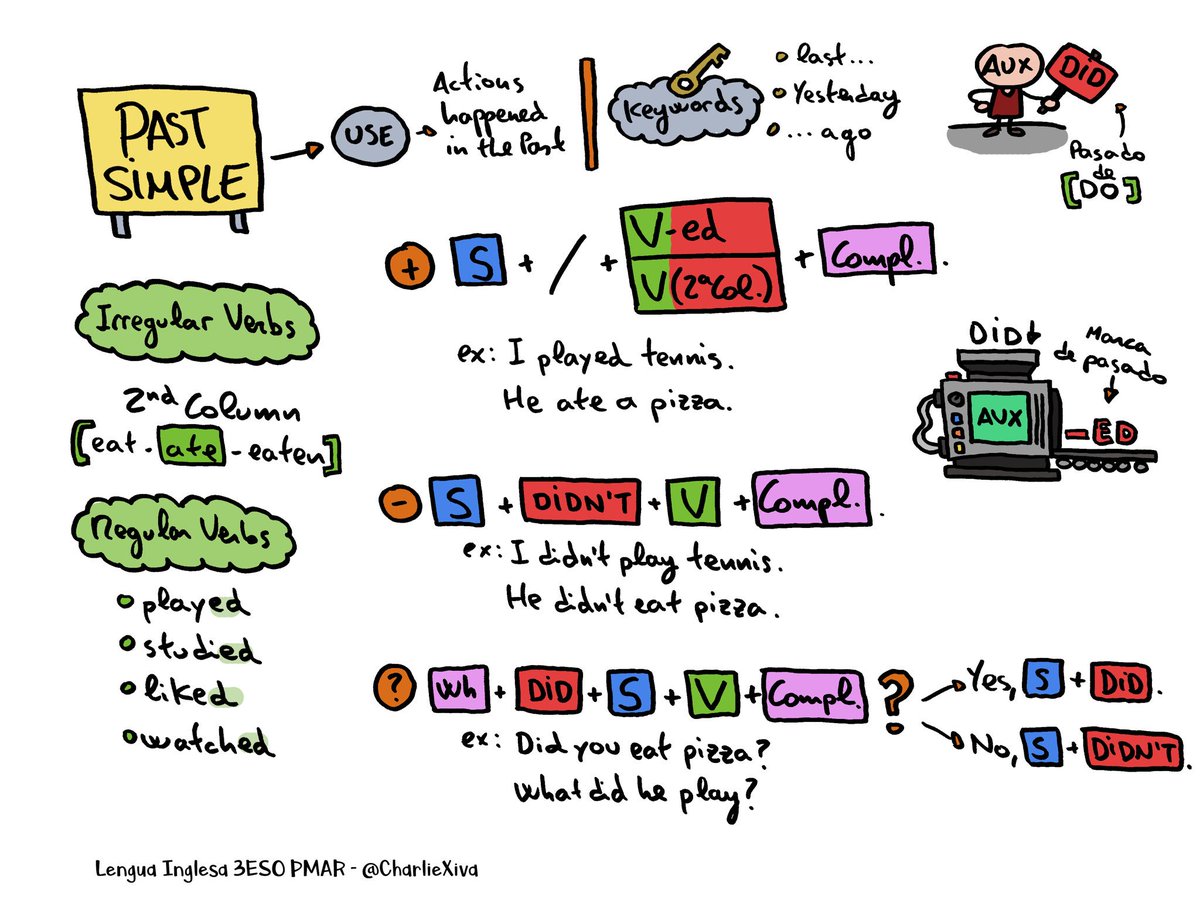 PAST
SIMPLE
USE
Actions
happened
in the Past
Keywords
last...
Yesterday
... ago
AUX
DiD
Pasado
de
[DO]
+ S + / + V-ed
V (2ªCol.) + Compl.
ex: I played tennis.
He ate a pizza.
Irregular Verbs
2nd Column
[eat - ate - eaten]
Regular Verbs
played
studied
liked
watched
DiD
Marca
de pasado
AUX
-ED
- S + DiDN'T + V + Compl.
ex: I didn't play tennis.
He didn't eat pizza.
? Wh + DiD + S + V + Compl. ?
Yes, S + DiD.
No, S + DiDN'T.
ex: Did you eat pizza?
What did he play?
Lengua Inglesa 3ESO PMAR - @CharlieXiva